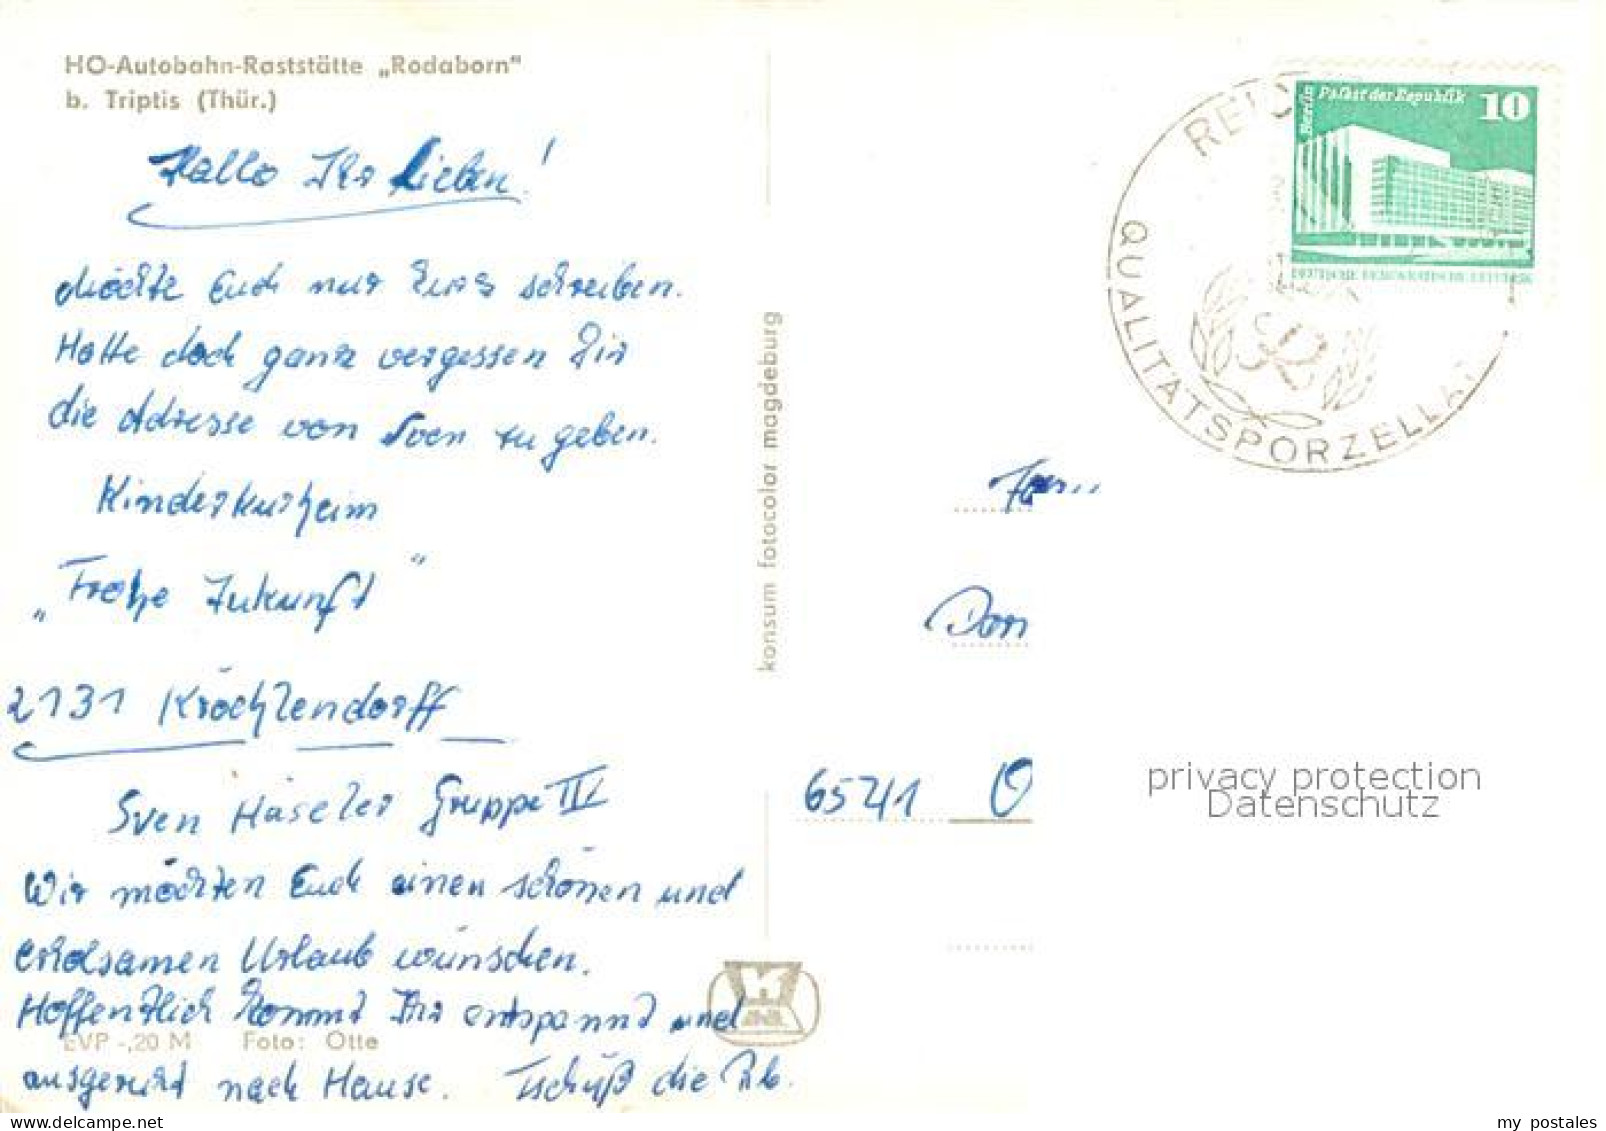 HO-Autobahn-Raststätte „Rodaborn"
b. Triptis (Thür.)
Hallo Ihr Lieben!
möchte Euch nur kurz schreiben.
Hatte doch ganz vergessen Dir
die Adresse von Sven zu geben.
Kinderkurheim
„Frohe Zukunft"
2131 Kröchlendorff
Sven Häseler Gruppe IV
Wir möchten Euch einen schönen und
erholsamen Urlaub wünschen.
Hoffentlich kommt Ihr entspannt und
ausgeruht nach Hause. Tschüß die
EVP -,20 M Foto: Otte
konsum fotocolor magdeburg
Berlin Palast der Republik 10
DEUTSCHE DEMOKRATISCHE REPUBLIK
QUALITÄTSPORZELLA
Fam
6541 O
privacy protection
Datenschutz
my_postales